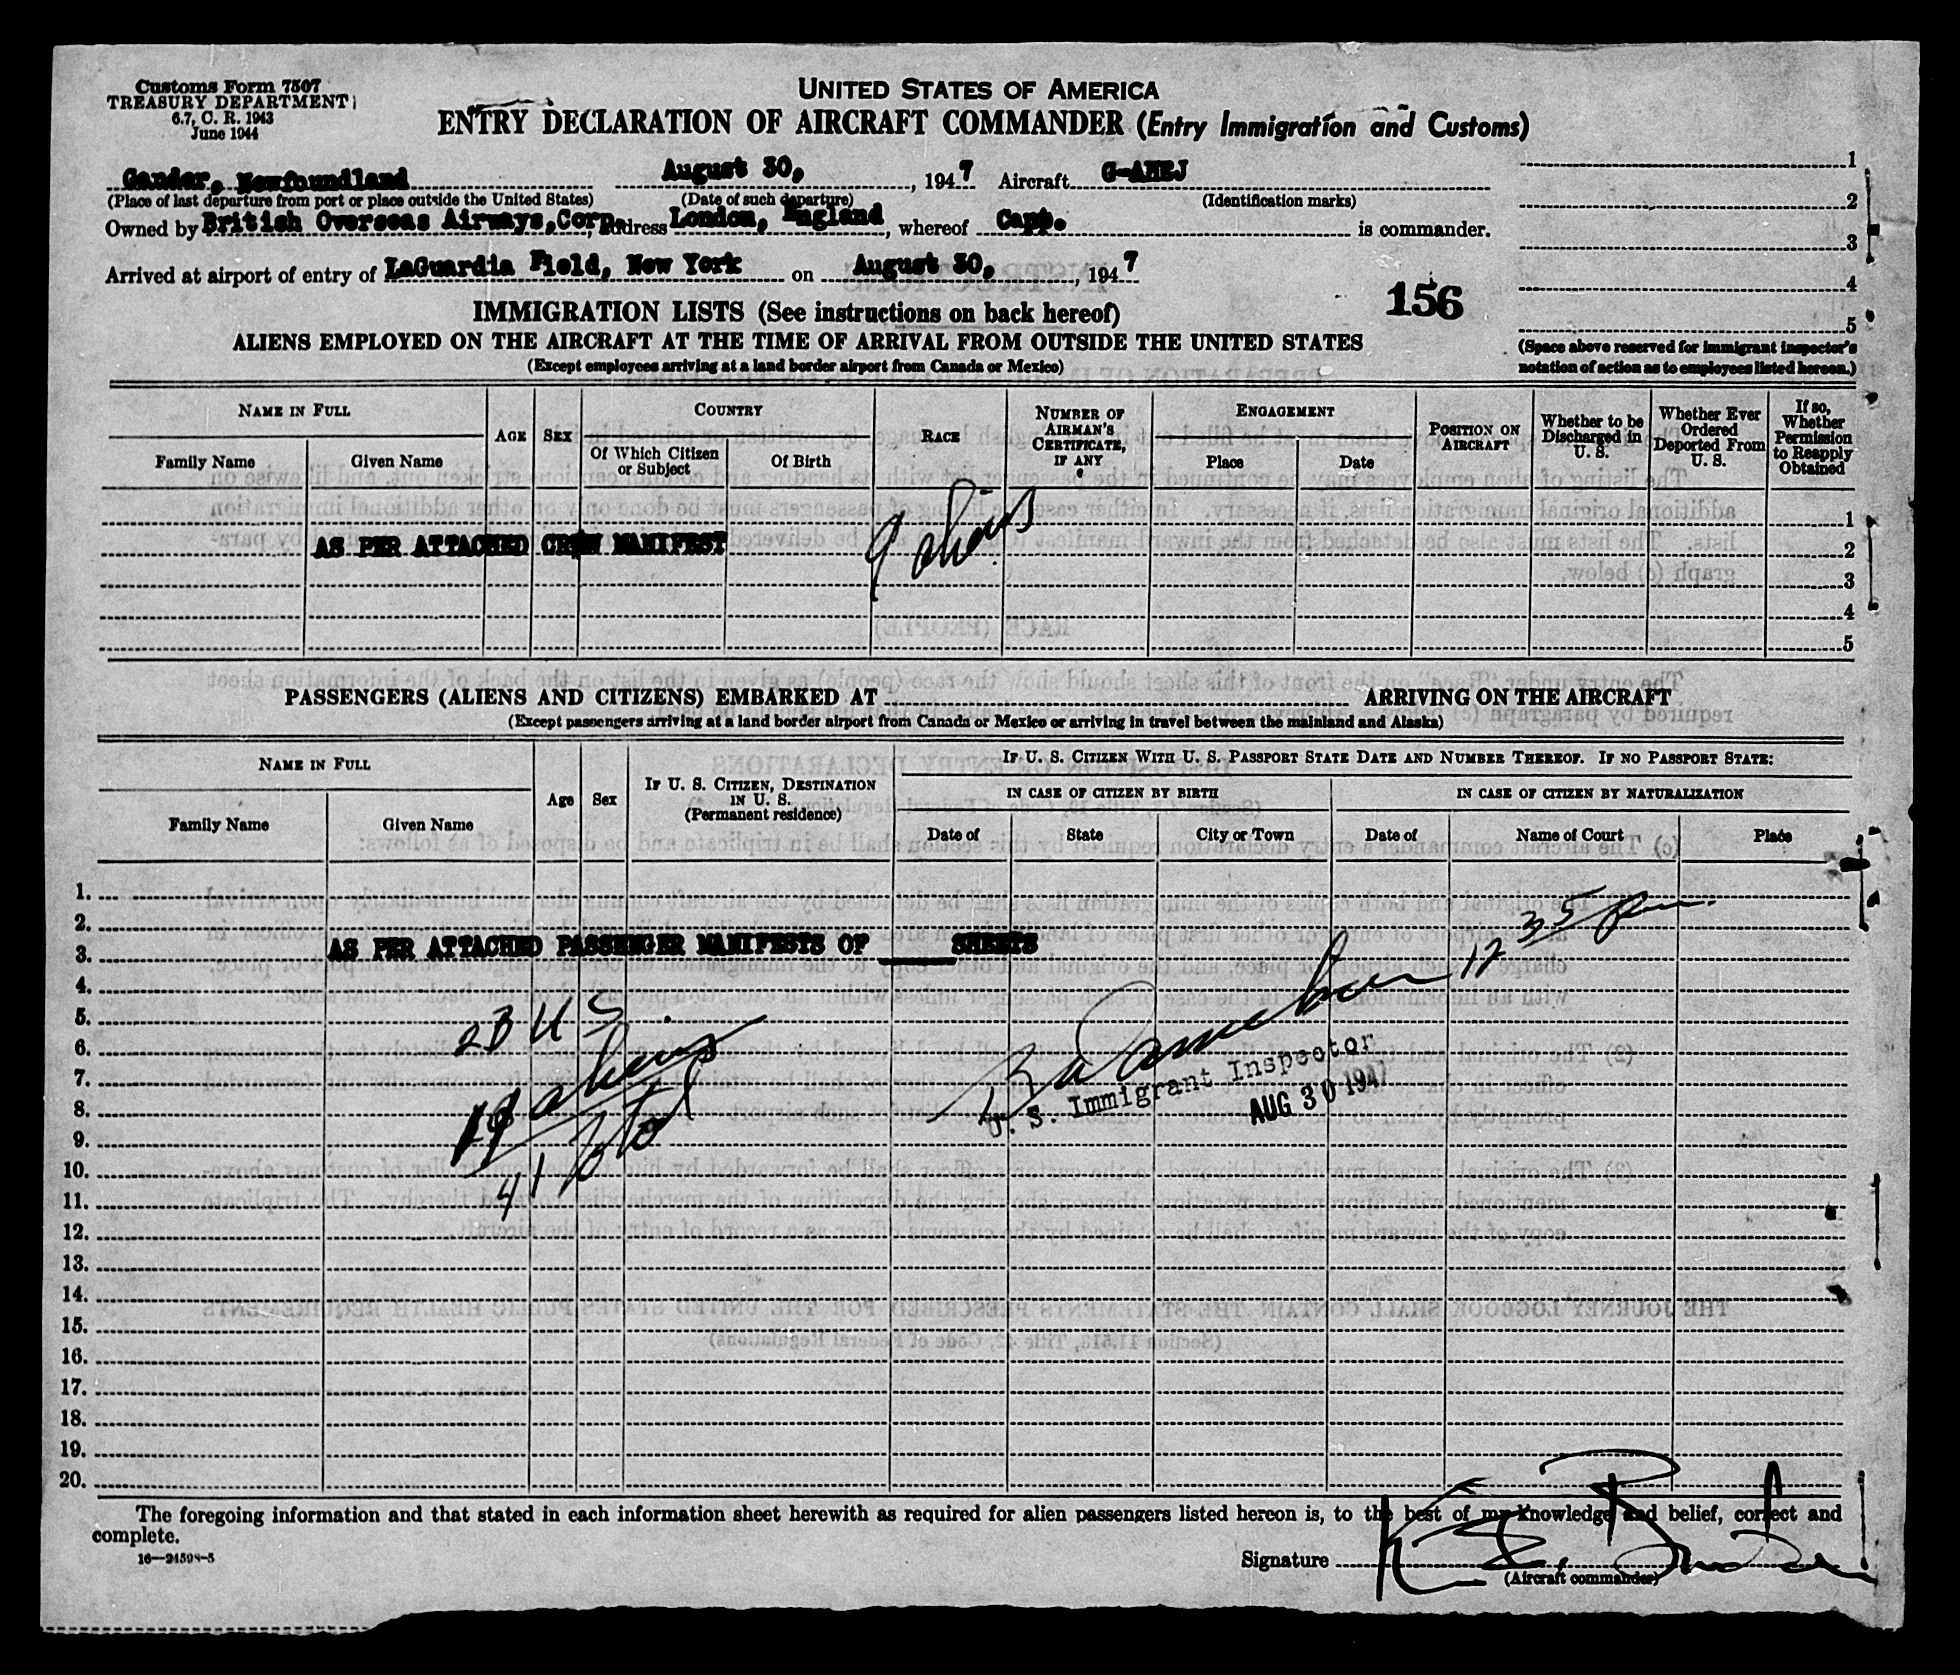 Customs Form 7507
TREASURY DEPARTMENT
6.7, C. R. 1943
June 1944
UNITED STATES OF AMERICA
ENTRY DECLARATION OF AIRCRAFT COMMANDER (Entry Immigration and Customs)
Gander, Newfoundland August 30, 1947 Aircraft
(Place of last departure from port or place outside the United States) (Date of such departure) (Identification marks)
Owned by British Overseas Airways, Corp. Address London, England, whereof Capt. is commander.
Arrived at airport of entry of LaGuardia Field, New York on August 30, 1947
1
2
3
4
5
(Space above reserved for immigrant inspector's notation of action as to employees listed hereon.)
156
IMMIGRATION LISTS (See instructions on back hereof)
ALIENS EMPLOYED ON THE AIRCRAFT AT THE TIME OF ARRIVAL FROM OUTSIDE THE UNITED STATES
(Except employees arriving at a land border airport from Canada or Mexico)
NAME IN FULL
Family Name Given Name
AGE SEX
COUNTRY
Of Which Citizen or Subject Of Birth
RACE
NUMBER OF AIRMAN'S CERTIFICATE, IF ANY
ENGAGEMENT
Place Date
POSITION ON AIRCRAFT
Whether to be Discharged in U. S.
Whether Ever Ordered Deported From U. S.
If so, Whether Permission to Reapply Obtained
1
AS PER ATTACHED CREW MANIFEST 9 aliens 2
3
4
5
PASSENGERS (ALIENS AND CITIZENS) EMBARKED AT ARRIVING ON THE AIRCRAFT
(Except passengers arriving at a land border airport from Canada or Mexico or arriving in travel between the mainland and Alaska)
NAME IN FULL
Family Name Given Name
Age Sex
IF U. S. CITIZEN, DESTINATION IN U. S.
(Permanent residence)
IF U. S. CITIZEN WITH U. S. PASSPORT STATE DATE AND NUMBER THEREOF. IF NO PASSPORT STATE:
IN CASE OF CITIZEN BY BIRTH IN CASE OF CITIZEN BY NATURALIZATION
Date of State City or Town Date of Name of Court Place
1.
2.
3. AS PER ATTACHED PASSENGER MANIFESTS OF SHEETS
12 35 pm
4.
5.
23 U S
6.
aliens
U. S. Immigrant Inspector
7.
AUG 30 1947
8.
9.
10.
41
11.
12.
13.
14.
15.
16.
17.
18.
19.
20.
The foregoing information and that stated in each information sheet herewith as required for alien passengers listed hereon is, to the best of my knowledge and belief, correct and
complete.
16—24598-5
Signature
(Aircraft commander)